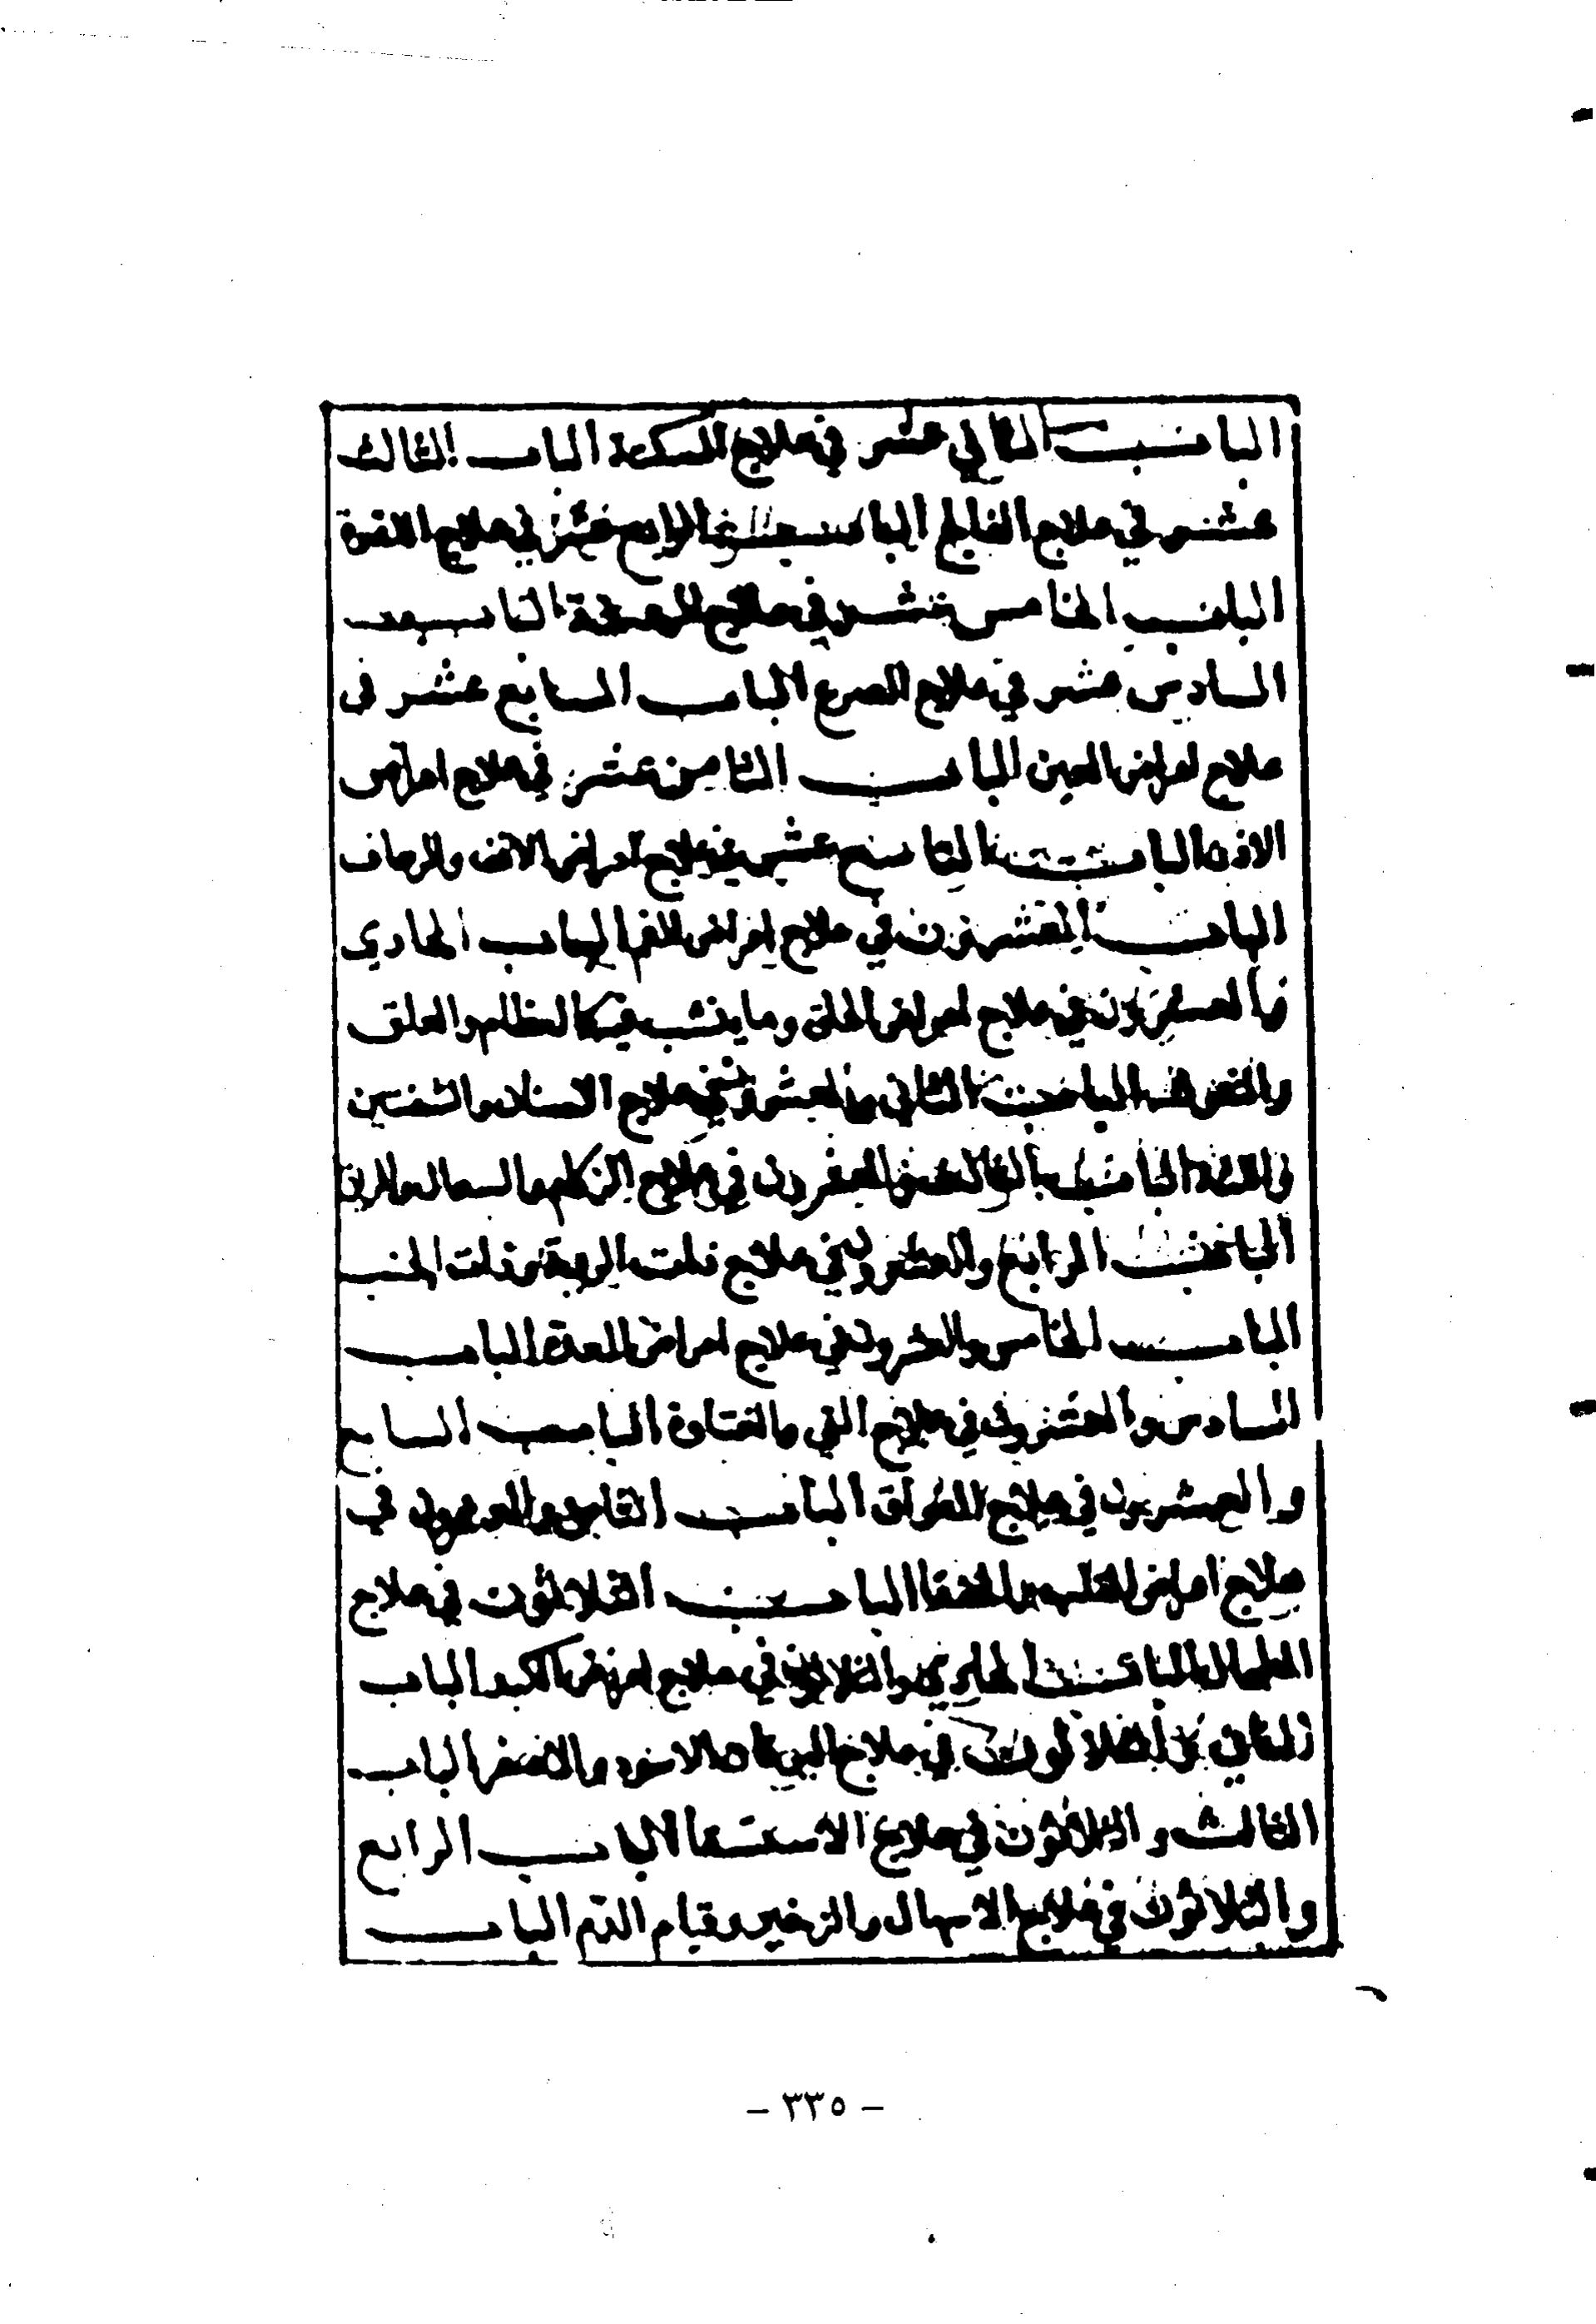 الباب الثاني عشر في علاج السكتة الباب الثالث
عشر في علاج الفالج الباب الرابع عشر في علاج اللقوة
الباب الخامس عشر في علاج الباب
السادس عشر في علاج الصرع الباب السابع عشر في
علاج امراض العين الباب الثامن عشر في علاج امراض
الاذن الباب التاسع عشر في علاج امراض الانف والرعاف
الباب العشرون في علاج امراض الفم الباب الحادي
والعشرون في علاج امراض الحلق وما ينشب فيه كالعظام والعلق
الباب الثاني والعشرون في علاج الاسنان والشفتين
الباب الثالث والعشرون في علاج الزكام والسعال والربو
الباب الرابع والعشرون في علاج ذات الرية وذات الجنب
الباب الخامس والعشرون في علاج امراض المعدة الباب
السادس والعشرون في علاج القي الباب السابع
والعشرون في علاج الفواق الباب الثامن والعشرون في
علاج امراض القلب والخفقا الباب الثلاثون في علاج
الطحال الباب الحادي والثلاثون في علاج امراض الكبد الباب
الثاني والثلاثون في علاج اليرقان الاسود والاصفر الباب
الثالث والثلاثون في علاج الاستسقا الباب الرابع
والثلاثون في علاج الاسهال والزحير وقيام الدم الباب
- ٣٣٥ -